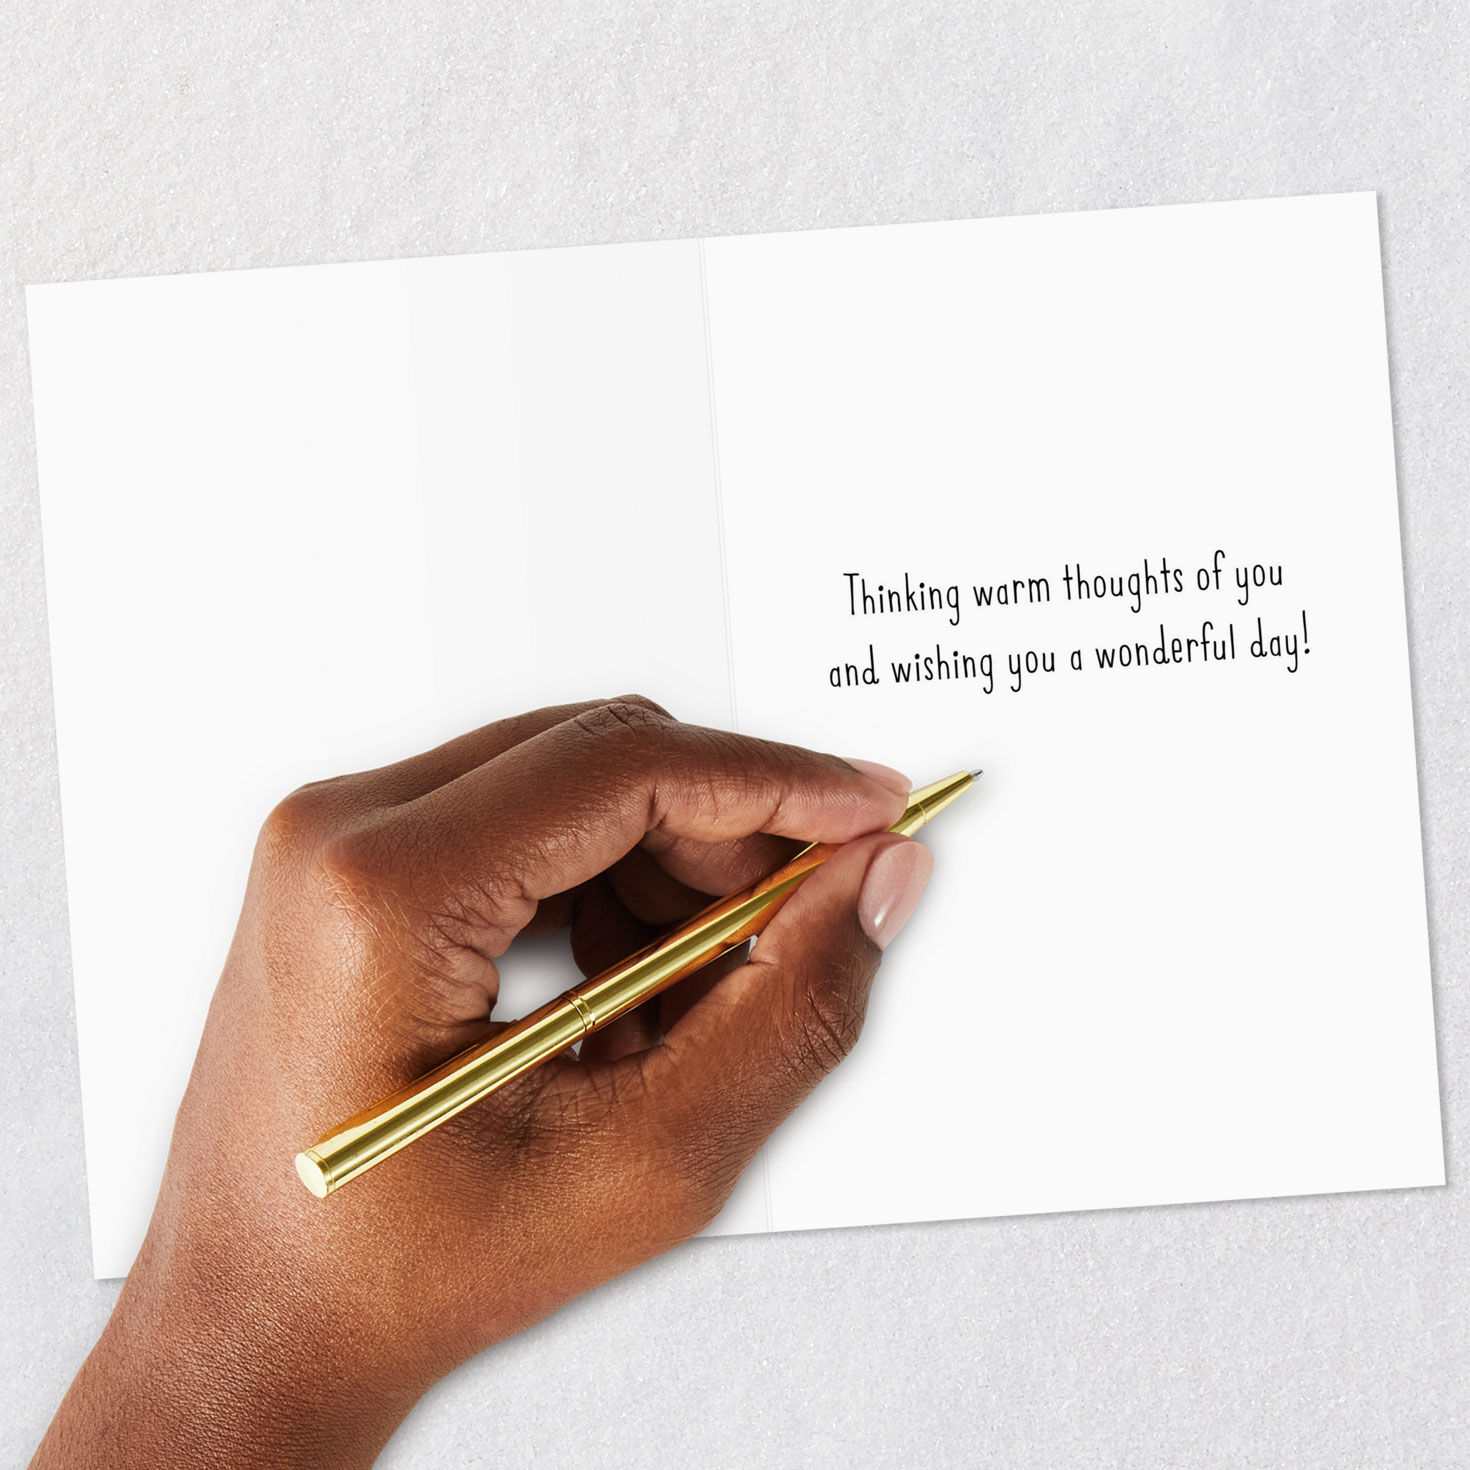 Thinking warm thoughts of you
and wishing you a wonderful day!